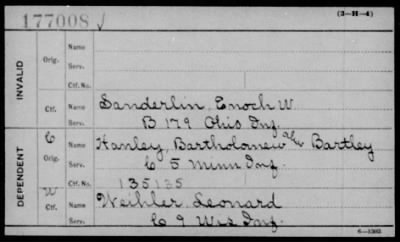 177008 √
(3-H-4)
INVALID
Orig.
Name
Serv.
Ctf. No.
Ctf.
Name Sanderlin, Enoch W
Serv. B 179 Ohio Inf.
DEPENDENT
C
Orig.
Name Hanley, Bartholomew alias Bartley
Serv. C 5 Minn Inf.
Ctf. No. 135135
W
Ctf.
Name Weihler, Leonard
Serv. C 9 Wis Inf.